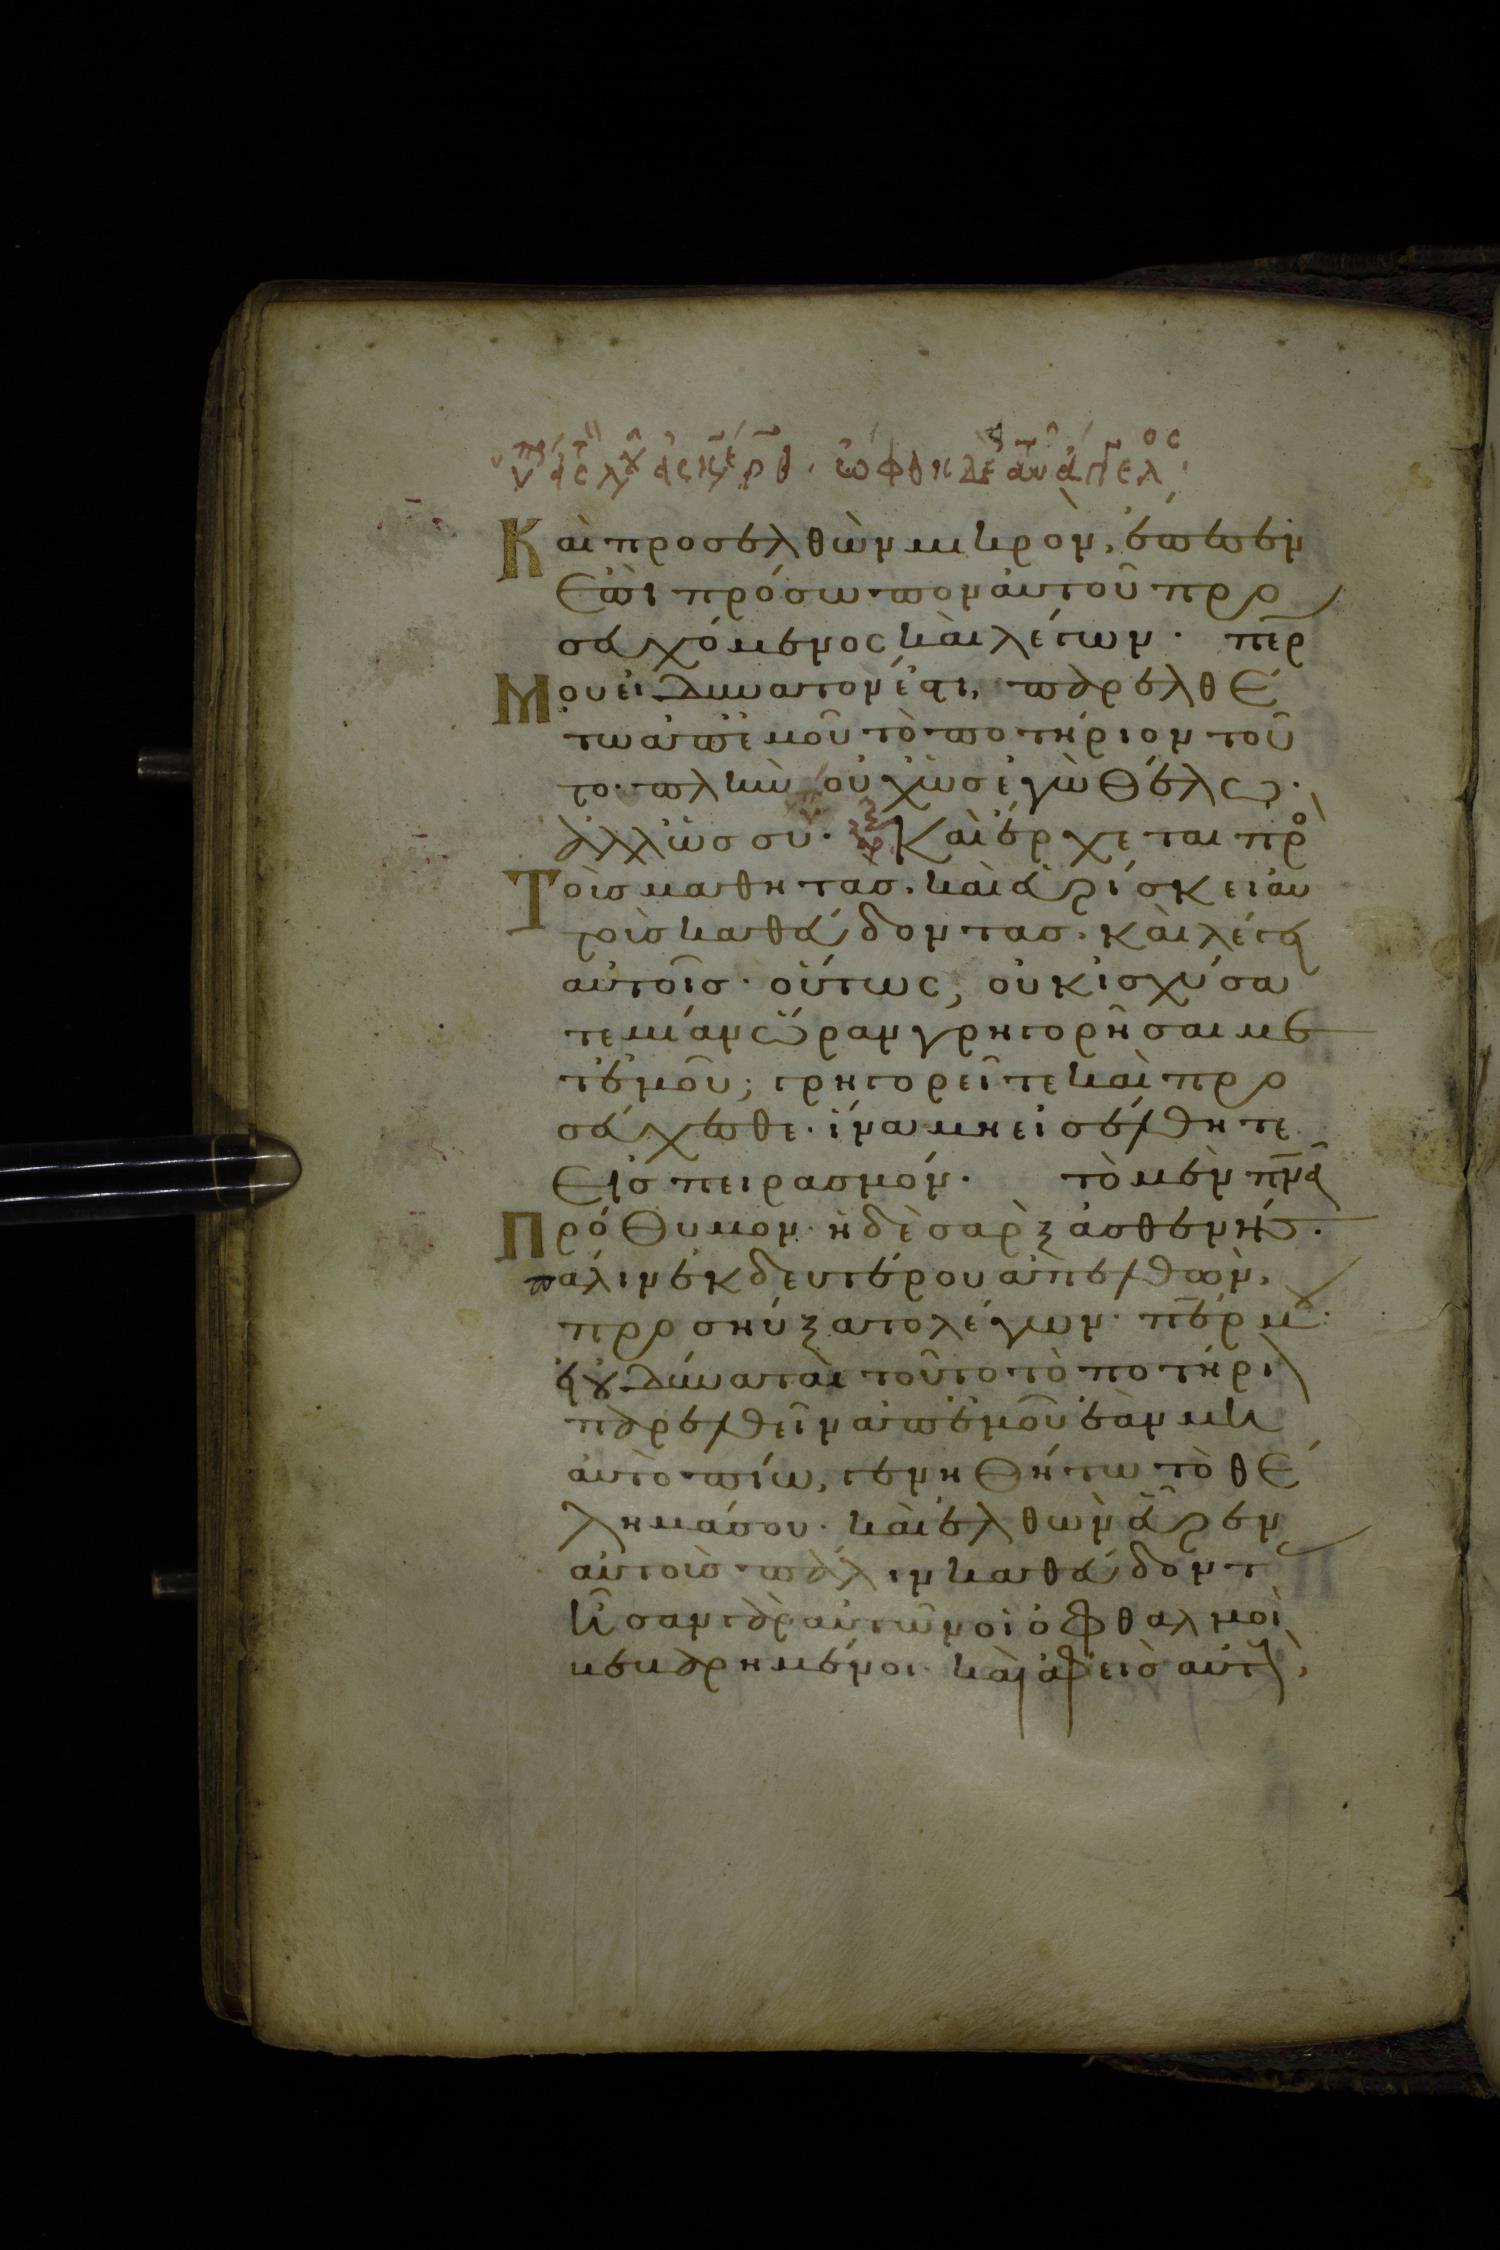 ὤφθη δὲ αὐτῶ ἄγγελος
Καὶ προσελθὼν μικρὸν, ἔπεσεν
ἐπὶ πρόσωπον αὐτοῦ προ
σευχόμενος καὶ λέγων· περ
Μου εἰ δυνατόν ἐστι, παρελθέ
τω ἀπ' ἐμοῦ τὸ ποτήριον τοῦ
το· πλὴν οὐχ ὡσ ἐγὼ θέλω·
ἀλλ' ὡσ συ· Καὶ ἔρχεται πρὸ
Τοὺσ μαθητασ· καὶ εὑρίσκει αυ
τοὺσ καθεύδοντασ· καὶ λέγει
αὐτοῖσ· οὕτως, οὐκ ἰσχύσα
τε μίαν ὥραν γρηγορῆσαι με
τ' ἐμοῦ; γρηγορεῖτε καὶ προ
σεύχεσθε· ἵνα μη εἰσέλθητε
Εἰσ πειρασμόν· τὸ μὲν πνα
Πρόθυμον· ἡ δὲ σαρξ ἀσθενήσ·
παλιν ἐκ δευτέρου ἀπελθων,
προσηύξατο λέγων· περ μου·
εἰ ου δύναται τοῦτο τὸ ποτήρι
παρελθεῖν ἀπ' ἐμοῦ ἐὰν μὴ
αὐτὸ πίω, γενηθήτω τὸ θέ
λημά σου· καὶ ἐλθὼν εὗρεν
αὐτοὺσ πάλιν καθεύδοντ
ἦσαν γὰρ αὐτῶν οἱ ὀφθαλμοὶ
βεβαρημένοι· καὶ ἀφεὶσ αὐτ